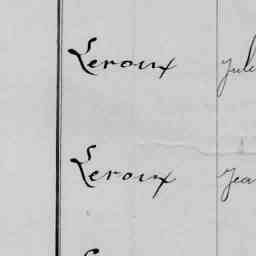 Leroux Jule
Leroux Jea